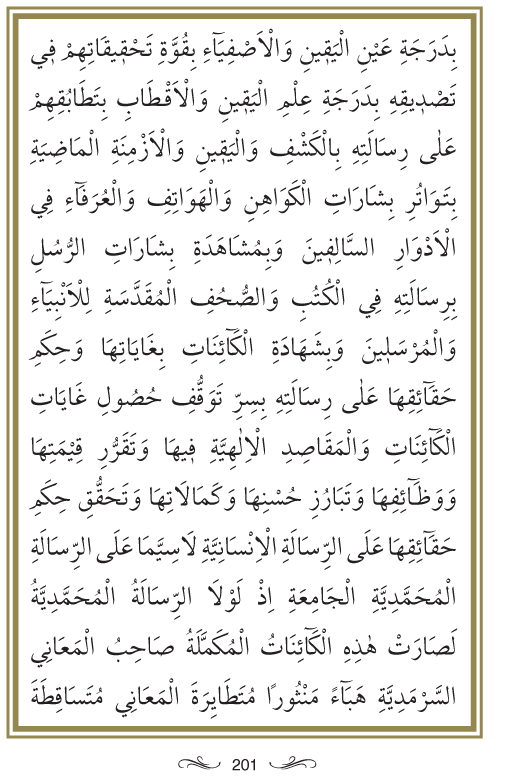 بِدَرَجَةِ عَيْنِ الْيَقٖينِ وَالْاَصْفِيَٓاءِ بِقُوَّةِ تَحْقٖيقَاتِهِمْ فٖي
تَصْدٖيقِهِ بِدَرَجَةِ عِلْمِ الْيَقٖينِ وَالْاَقْطَابِ بِتَطَابُقِهِمْ
عَلٰى رِسَالَتِهِ بِالْكَشْفِ وَالْيَقٖينِ وَالْاَزْمِنَةِ الْمَاضِيَةِ
بِتَوَاتُرِ بِشَارَاتِ الْكَوَاهِنِ وَالْهَوَاتِفِ وَالْعُرَفَٓاءِ فِي
الْاَدْوَارِ السَّالِفٖينَ وَبِمُشَاهَدَةِ بِشَارَاتِ الرُّسُلِ
بِرِسَالَتِهِ فِي الْكُتُبِ وَالصُّحُفِ الْمُقَدَّسَةِ لِلْاَنْبِيَٓاءِ
وَالْمُرْسَلٖينَ وَبِشَهَادَةِ الْكَٓائِنَاتِ بِغَايَاتِهَا وَحِكَمِ
حَقَٓائِقِهَا عَلٰى رِسَالَتِهِ بِسِرِّ تَوَقُّفِ حُصُولِ غَايَاتِ
الْكَٓائِنَاتِ وَالْمَقَاصِدِ الْاِلٰهِيَّةِ فٖيهَا وَتَقَرُّرِ قِيْمَتِهَا
وَوَظَٓائِفِهَا وَتَبَارُزِ حُسْنِهَا وَكَمَالَاتِهَا وَتَحَقُّقِ حِكَمِ
حَقَٓائِقِهَا عَلَى الرِّسَالَةِ الْاِنْسَانِيَّةِ لَاسِيَّمَا عَلَى الرِّسَالَةِ
الْمُحَمَّدِيَّةِ الْجَامِعَةِ اِذْ لَوْلَا الرِّسَالَةُ الْمُحَمَّدِيَّةُ
لَصَارَتْ هٰذِهِ الْكَٓائِنَاتُ الْمُكَمَّلَةُ صَاحِبُ الْمَعَانِي
السَّرْمَدِيَّةِ هَبَٓاءً مَنْثُورًا مُتَطَايِرَةَ الْمَعَانِي مُتَسَاقِطَةَ
201